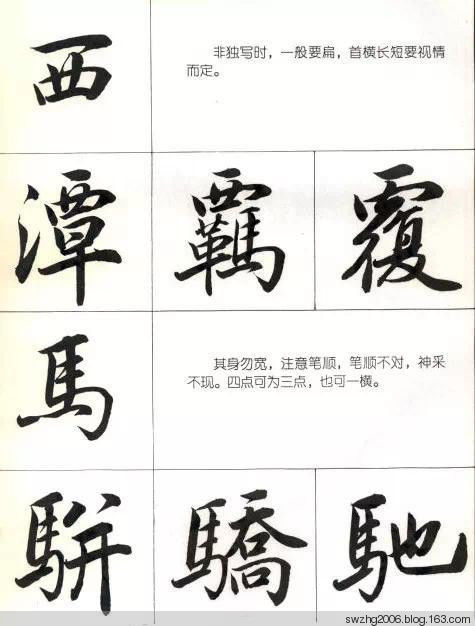 西
非独写时，一般要扁，首横长短要视情
而定。
潭 覊 覆
馬
其身勿宽，注意笔顺，笔顺不对，神采
不现。四点可为三点，也可一横。
駢 驕 馳
swzhg2006.blog.163.com